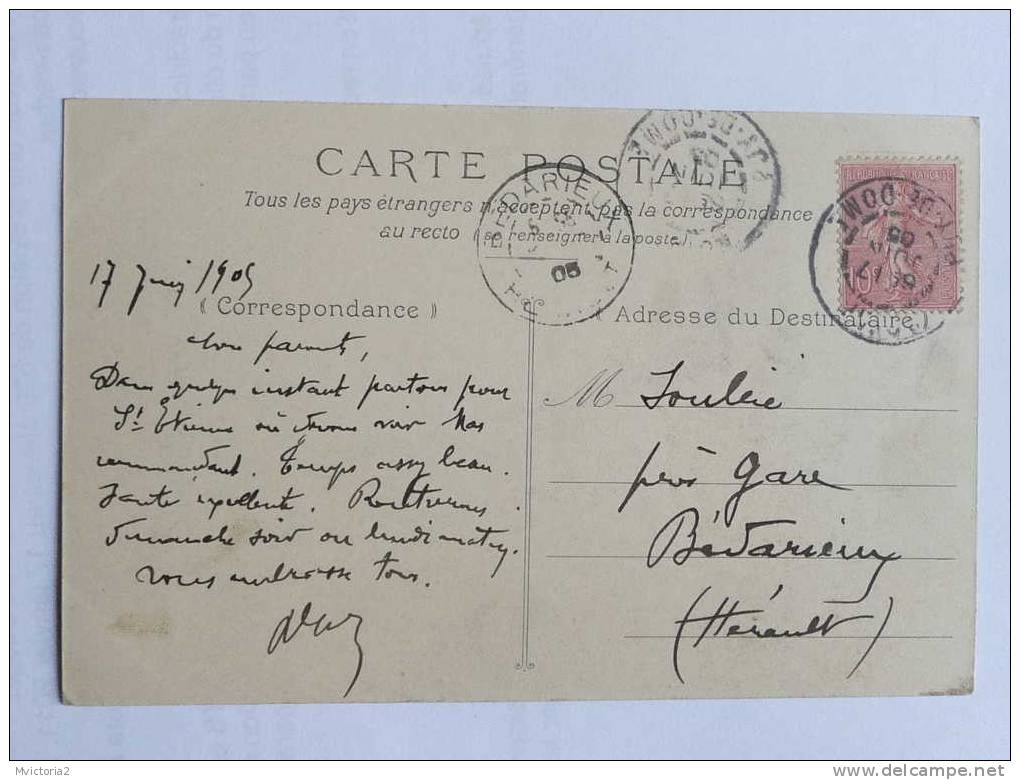 CARTE POSTALE
Tous les pays étrangers n'acceptent pas la correspondance
au recto (se renseigner à la poste).
17 Juin 1905
(Correspondance)
(Adresse du Destinataire)
chers parents,
Dans quelques instant partons pour
St Etienne où devons voir Mas
commandant. Temps assy beau.
Santé excellente. Rentrerons
dimanche soir ou lundi matin.
vous embrasse tous.
M Soulié
près Gare
Bédarieux
(Hérault)
BEDARIEUX
05
PUY-DE-DOME
PUY-DE-DOME
10
Mvictoria2
delcampe.net